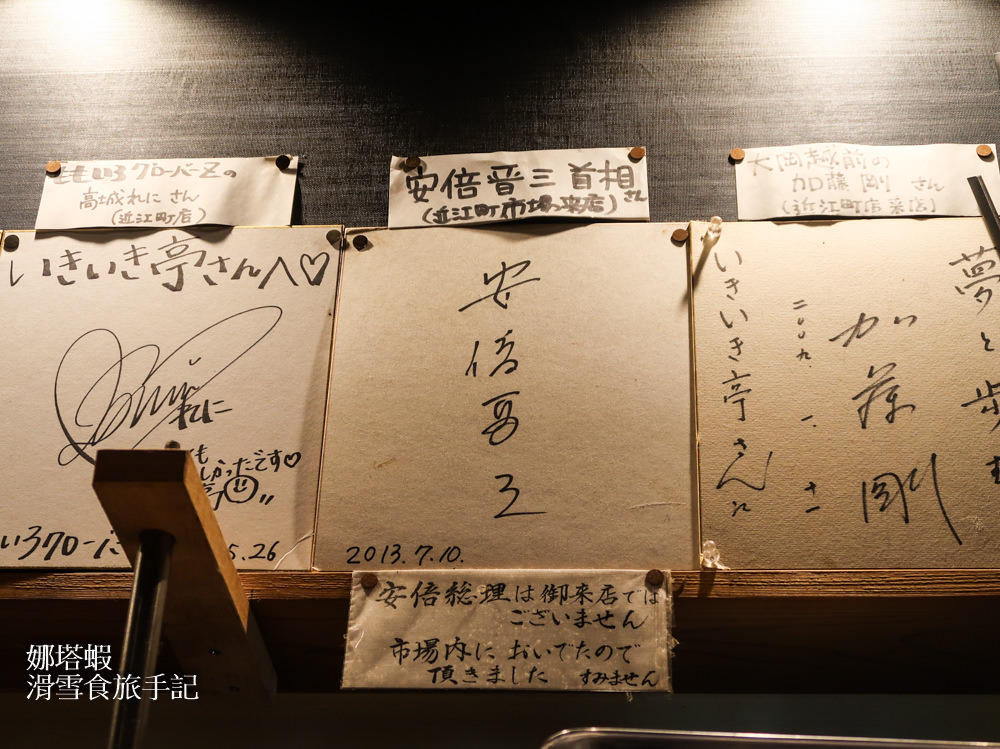 ももいろクローバーZの
高城れにさん
(近江町店)
安倍晋三首相さん
(近江町市場へ来店)
大岡越前の
加藤剛さん
(近江町店来店)
いきいき亭さんへ♡
れに
も
しかったです♡
いろクローバー
5.26
安倍晋三
2013.7.10.
夢と歩
加藤剛
二〇〇九、一、十一
いきいき亭さんに
安倍総理は御来店では
ございません
市場内においでたので
頂きました すみません
娜塔蝦
滑雪食旅手記